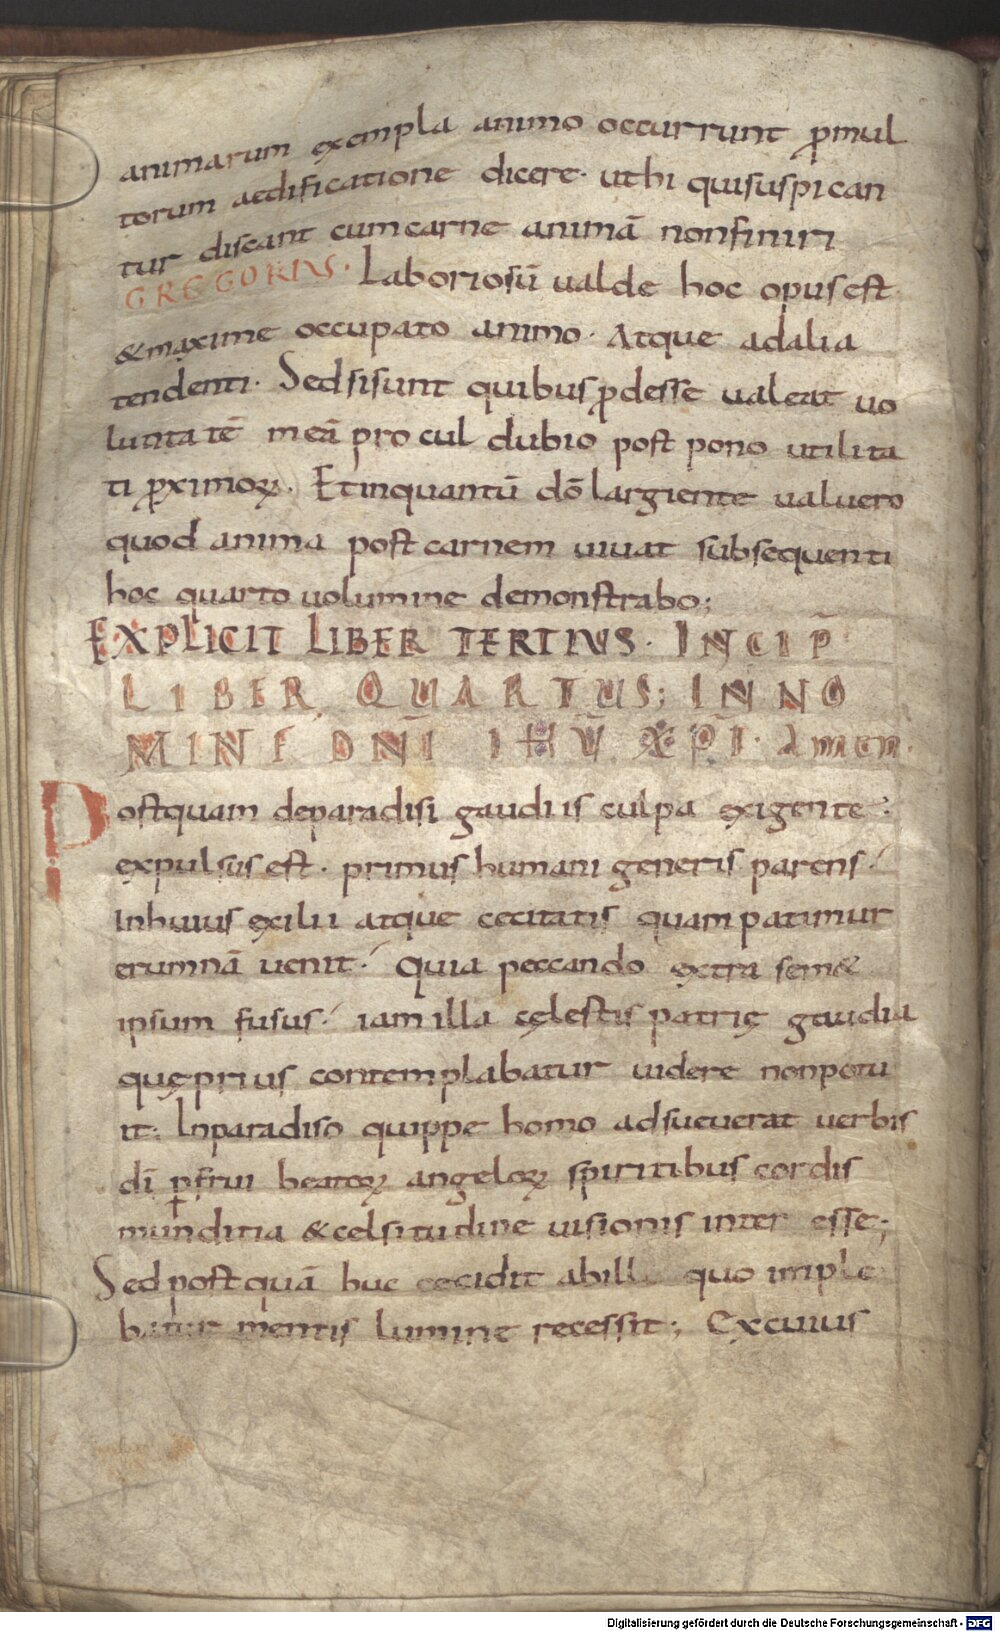 animarum exempla animo occurrunt p̄mul
torum aedificatione dicere· ut hi qui suspican
tur discant cum carne animā non finiri
GREGORIUS· Laboriosū ualde hoc opus est
& maxime occupato animo· Atque ad alia
tendenti· Sed si sunt quibus ꝓdesse ualeat uo
luntatē meā procul dubio post pono utilita
ti ꝓximoꝝ· Et inquantū dō largiente valuero
quod anima post carnem uiuat subsequenti
hoc quarto uolumine demonstrabo;
EXPLICIT LIBER TERTIUS· INCIP̄
LIBER QUARTUS; IN NO
MINE DN̄I IHŪ XP̄I· Amen·
Postquam de paradisi gaudiis culpa exigente·
expulsus est· primus humani generis parens·
In huius exilii atque cecitatis quam patimur
erumnā uenit· Quia peccando extra sem&
ipsum fusus· iam illa cęlestis patrię gaudia
quę prius contemplabatur uidere non potu
it; In paradiso quippe homo adsueuerat verbis
dī ꝑfrui beatoꝝ angeloꝝ spiritibus cordis
munditia & celsitudine uisionis inter esse;
Sed postquā huc cecidit ab illo quo imple
batur mentis lumine recessit; Ex cuius
Digitalisierung gefördert durch die Deutsche Forschungsgemeinschaft - DFG